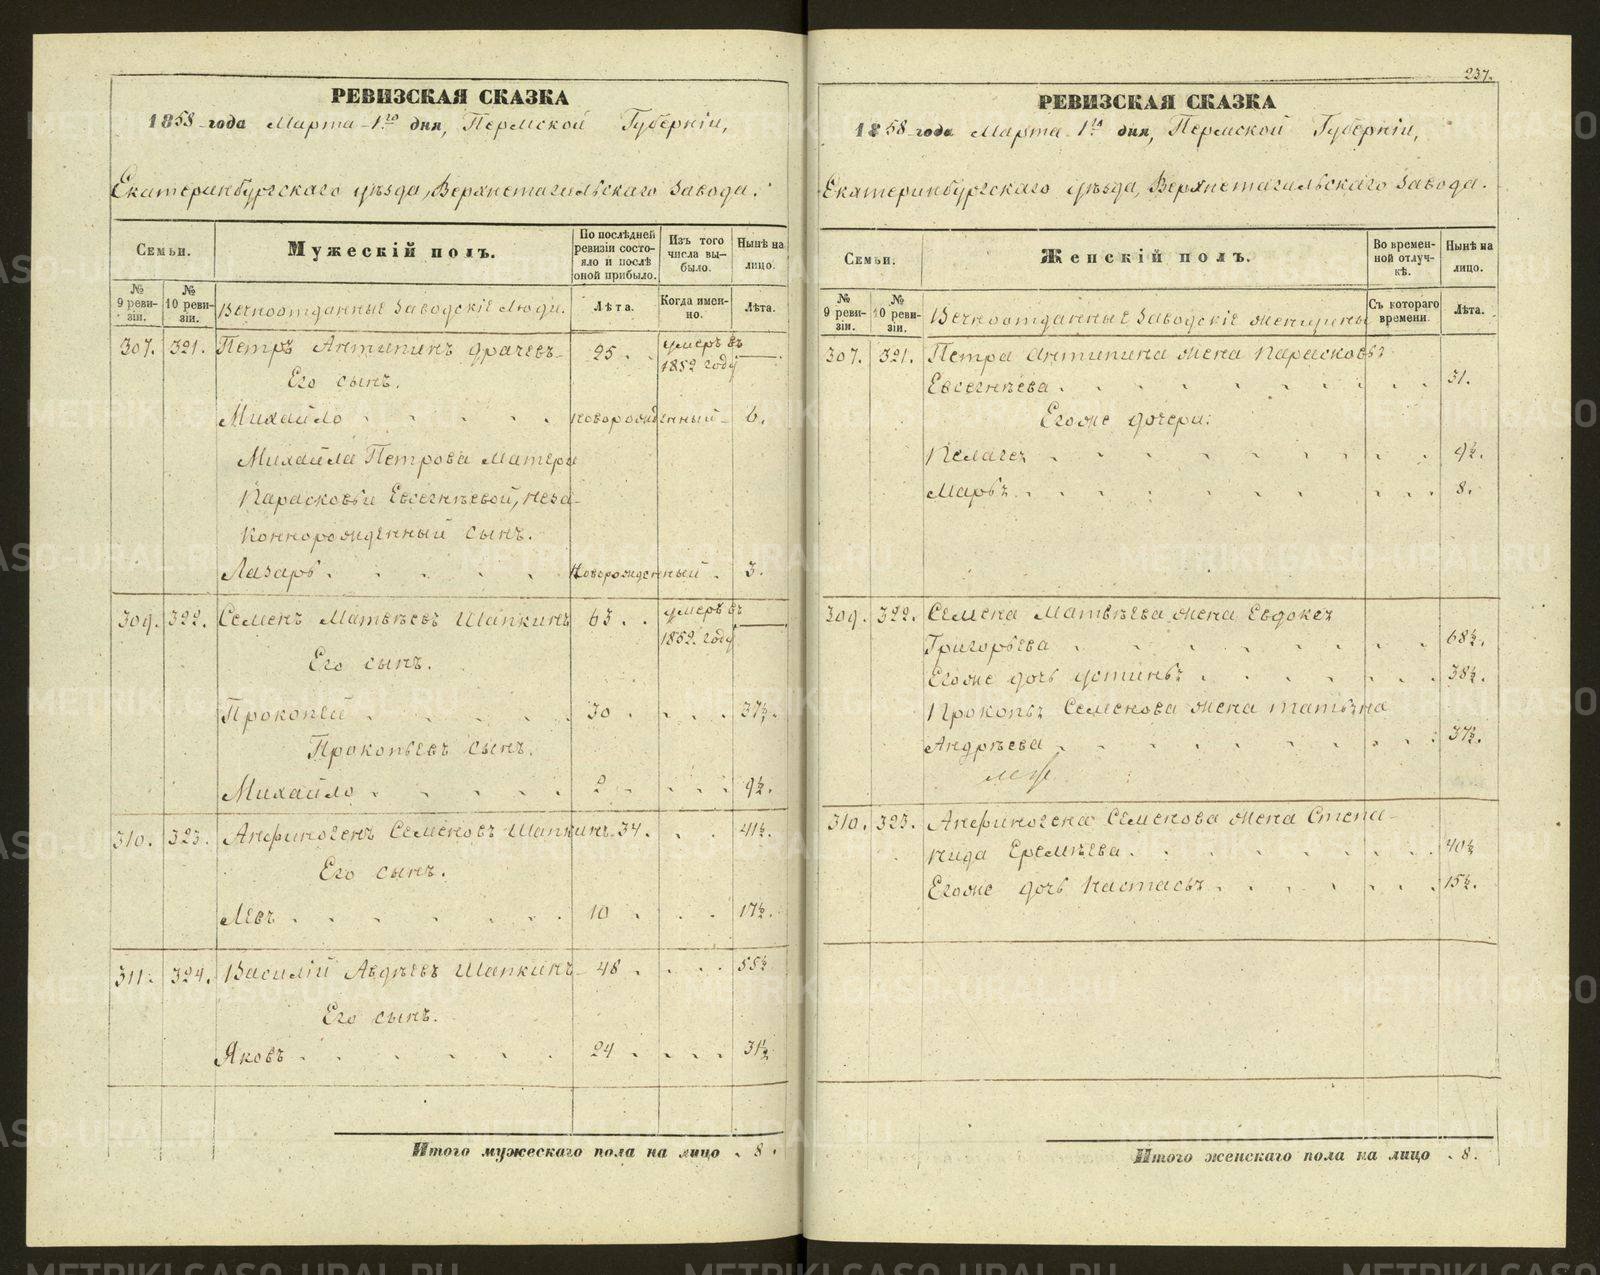 РЕВИЗСКАЯ СКАЗКА
1858 года Марта 1го дня, Пермской Губерніи,
Екатеринбургскаго уѣзда, Верхнетагильскаго Завода.
Семьи.
Мужескій полъ.
По послѣдней ревизіи состояло и послѣ оной прибыло.
Изъ того числа выбыло.
Нынѣ на лицо.
№ 9 ревизіи.
№ 10 ревизіи.
Вечноотданные Заводскіе Люди.
Лѣта.
Когда именно.
Лѣта.
307. 321. Петръ Антипинъ Драчевъ 25. умеръ въ 1852 году
Его сынъ.
Михайло новорожденный 6.
Михайла Петрова матери
Парасковьи Евсегнѣевой, неза-
коннорожденный сынъ.
Лазарь новорожденный. 3.
309. 322. Семенъ Матвѣевъ Шапкинъ 63. умеръ въ 1852. году
Его сынъ.
Прокопей 30 37½.
Прокопьевъ сынъ.
Михайло 2 9½.
310. 323. Анфиногенъ Семеновъ Шапкинъ 34. 41½.
Его сынъ.
Левъ 10 17½.
311. 324. Василій Авдѣевъ Шапкинъ 48 55½
Его сынъ.
Яковъ 24 31½
Итого мужескаго пола на лицо 8.
237.
РЕВИЗСКАЯ СКАЗКА
1858 года Марта 1го дня, Пермской Губерніи,
Екатеринбургскаго уѣзда, Верхнетагильскаго Завода.
Семьи.
Женскій полъ.
Во временной отлучкѣ.
Нынѣ на лицо.
№ 9 ревизіи.
№ 10 ревизіи.
Вечноотданные Заводскіе женщины
Съ котораго времени.
Лѣта.
307. 321. Петра Антипина жена Парасковья
Евсегнѣева 31.
Егоже дочери:
Пелагея 9½.
Марья 8.
309. 322. Семена Матвѣева жена Евдокея
Григорьева 68½.
Егоже дочь Устинья 38½.
Прокопья Семенова жена Татьяна
Андрѣева 37½.
310. 323. Анфиногена Семенова жена Степа-
нида Еремѣева 40½
Егоже дочь Настасья 15½.
Итого женскаго пола на лицо 8.
METRIKI.GASO-URAL.RU